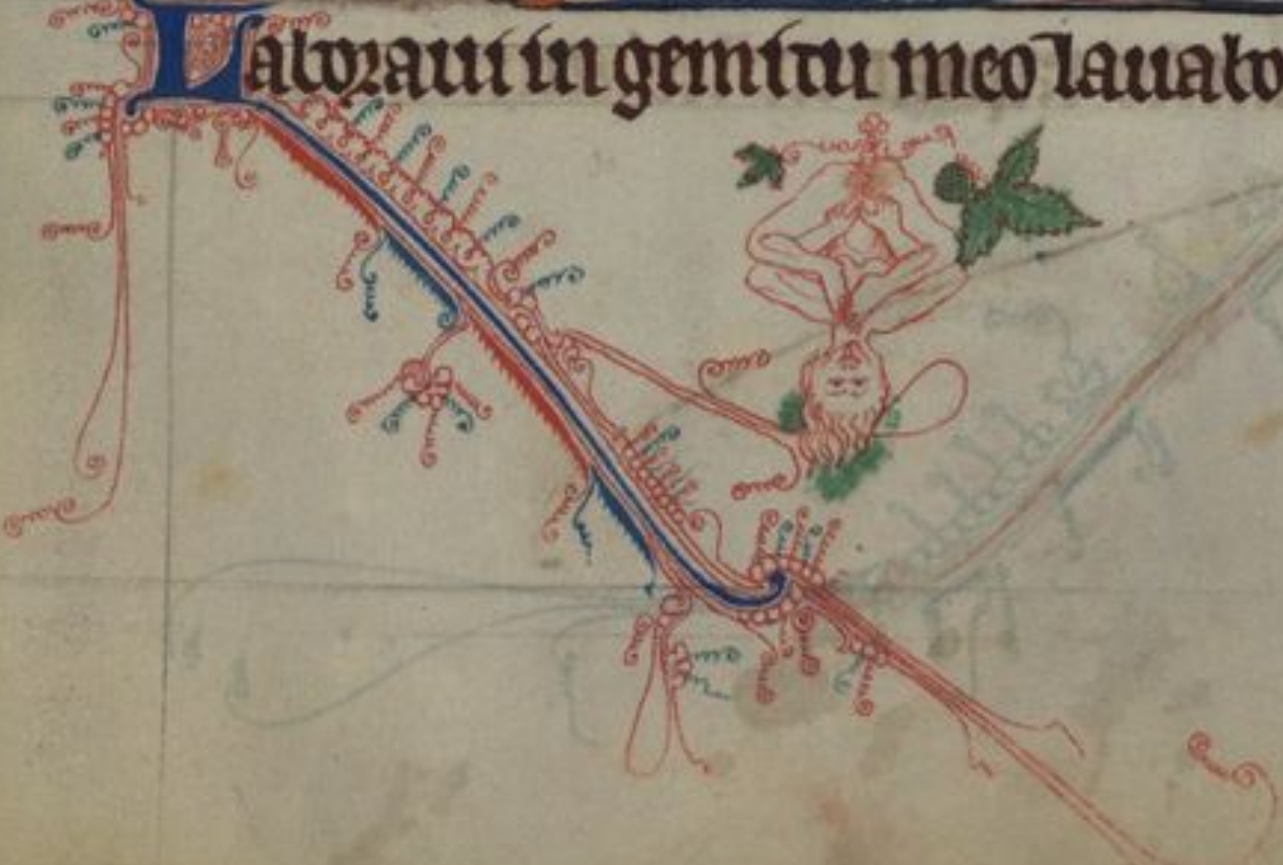 Laboraui in gemitu meo lauabo